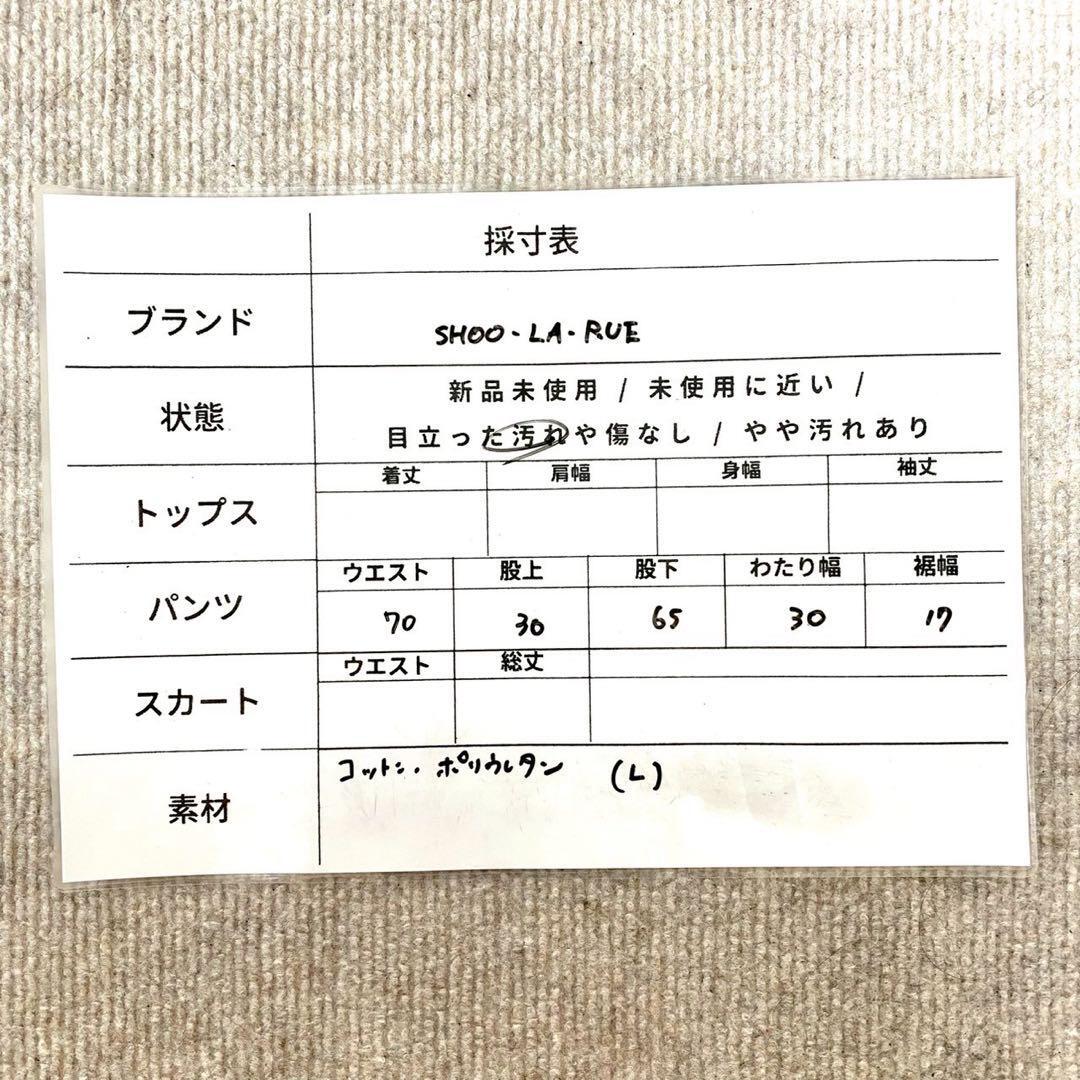 採寸表
ブランド SHOO・LA・RUE
状態 新品未使用 / 未使用に近い /
目立った汚れや傷なし / やや汚れあり
トップス 着丈 肩幅 身幅 袖丈
パンツ ウエスト 股上 股下 わたり幅 裾幅
70 30 65 30 17
スカート ウエスト 総丈
素材 コットン・ポリウレタン (L)